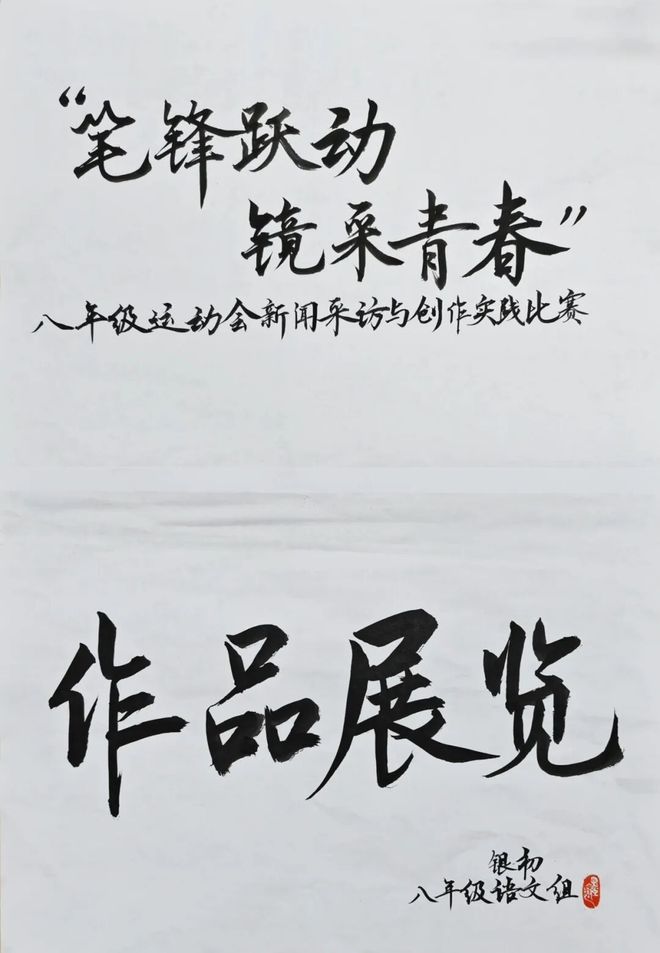 “笔锋跃动
镜采青春”
八年级运动会新闻采访与创作实践比赛
作品展览
银初
八年级语文组